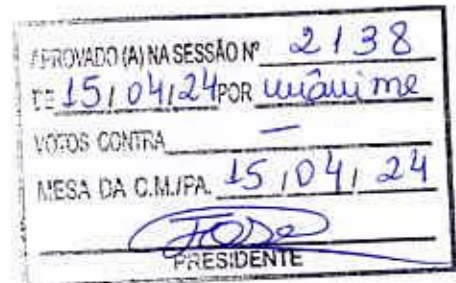 APROVADO (A) NA SESSÃO Nº 2138
DE 15/04/24 POR unânime
VOTOS CONTRA —
MESA DA C.M./PA. 15/04/24
PRESIDENTE